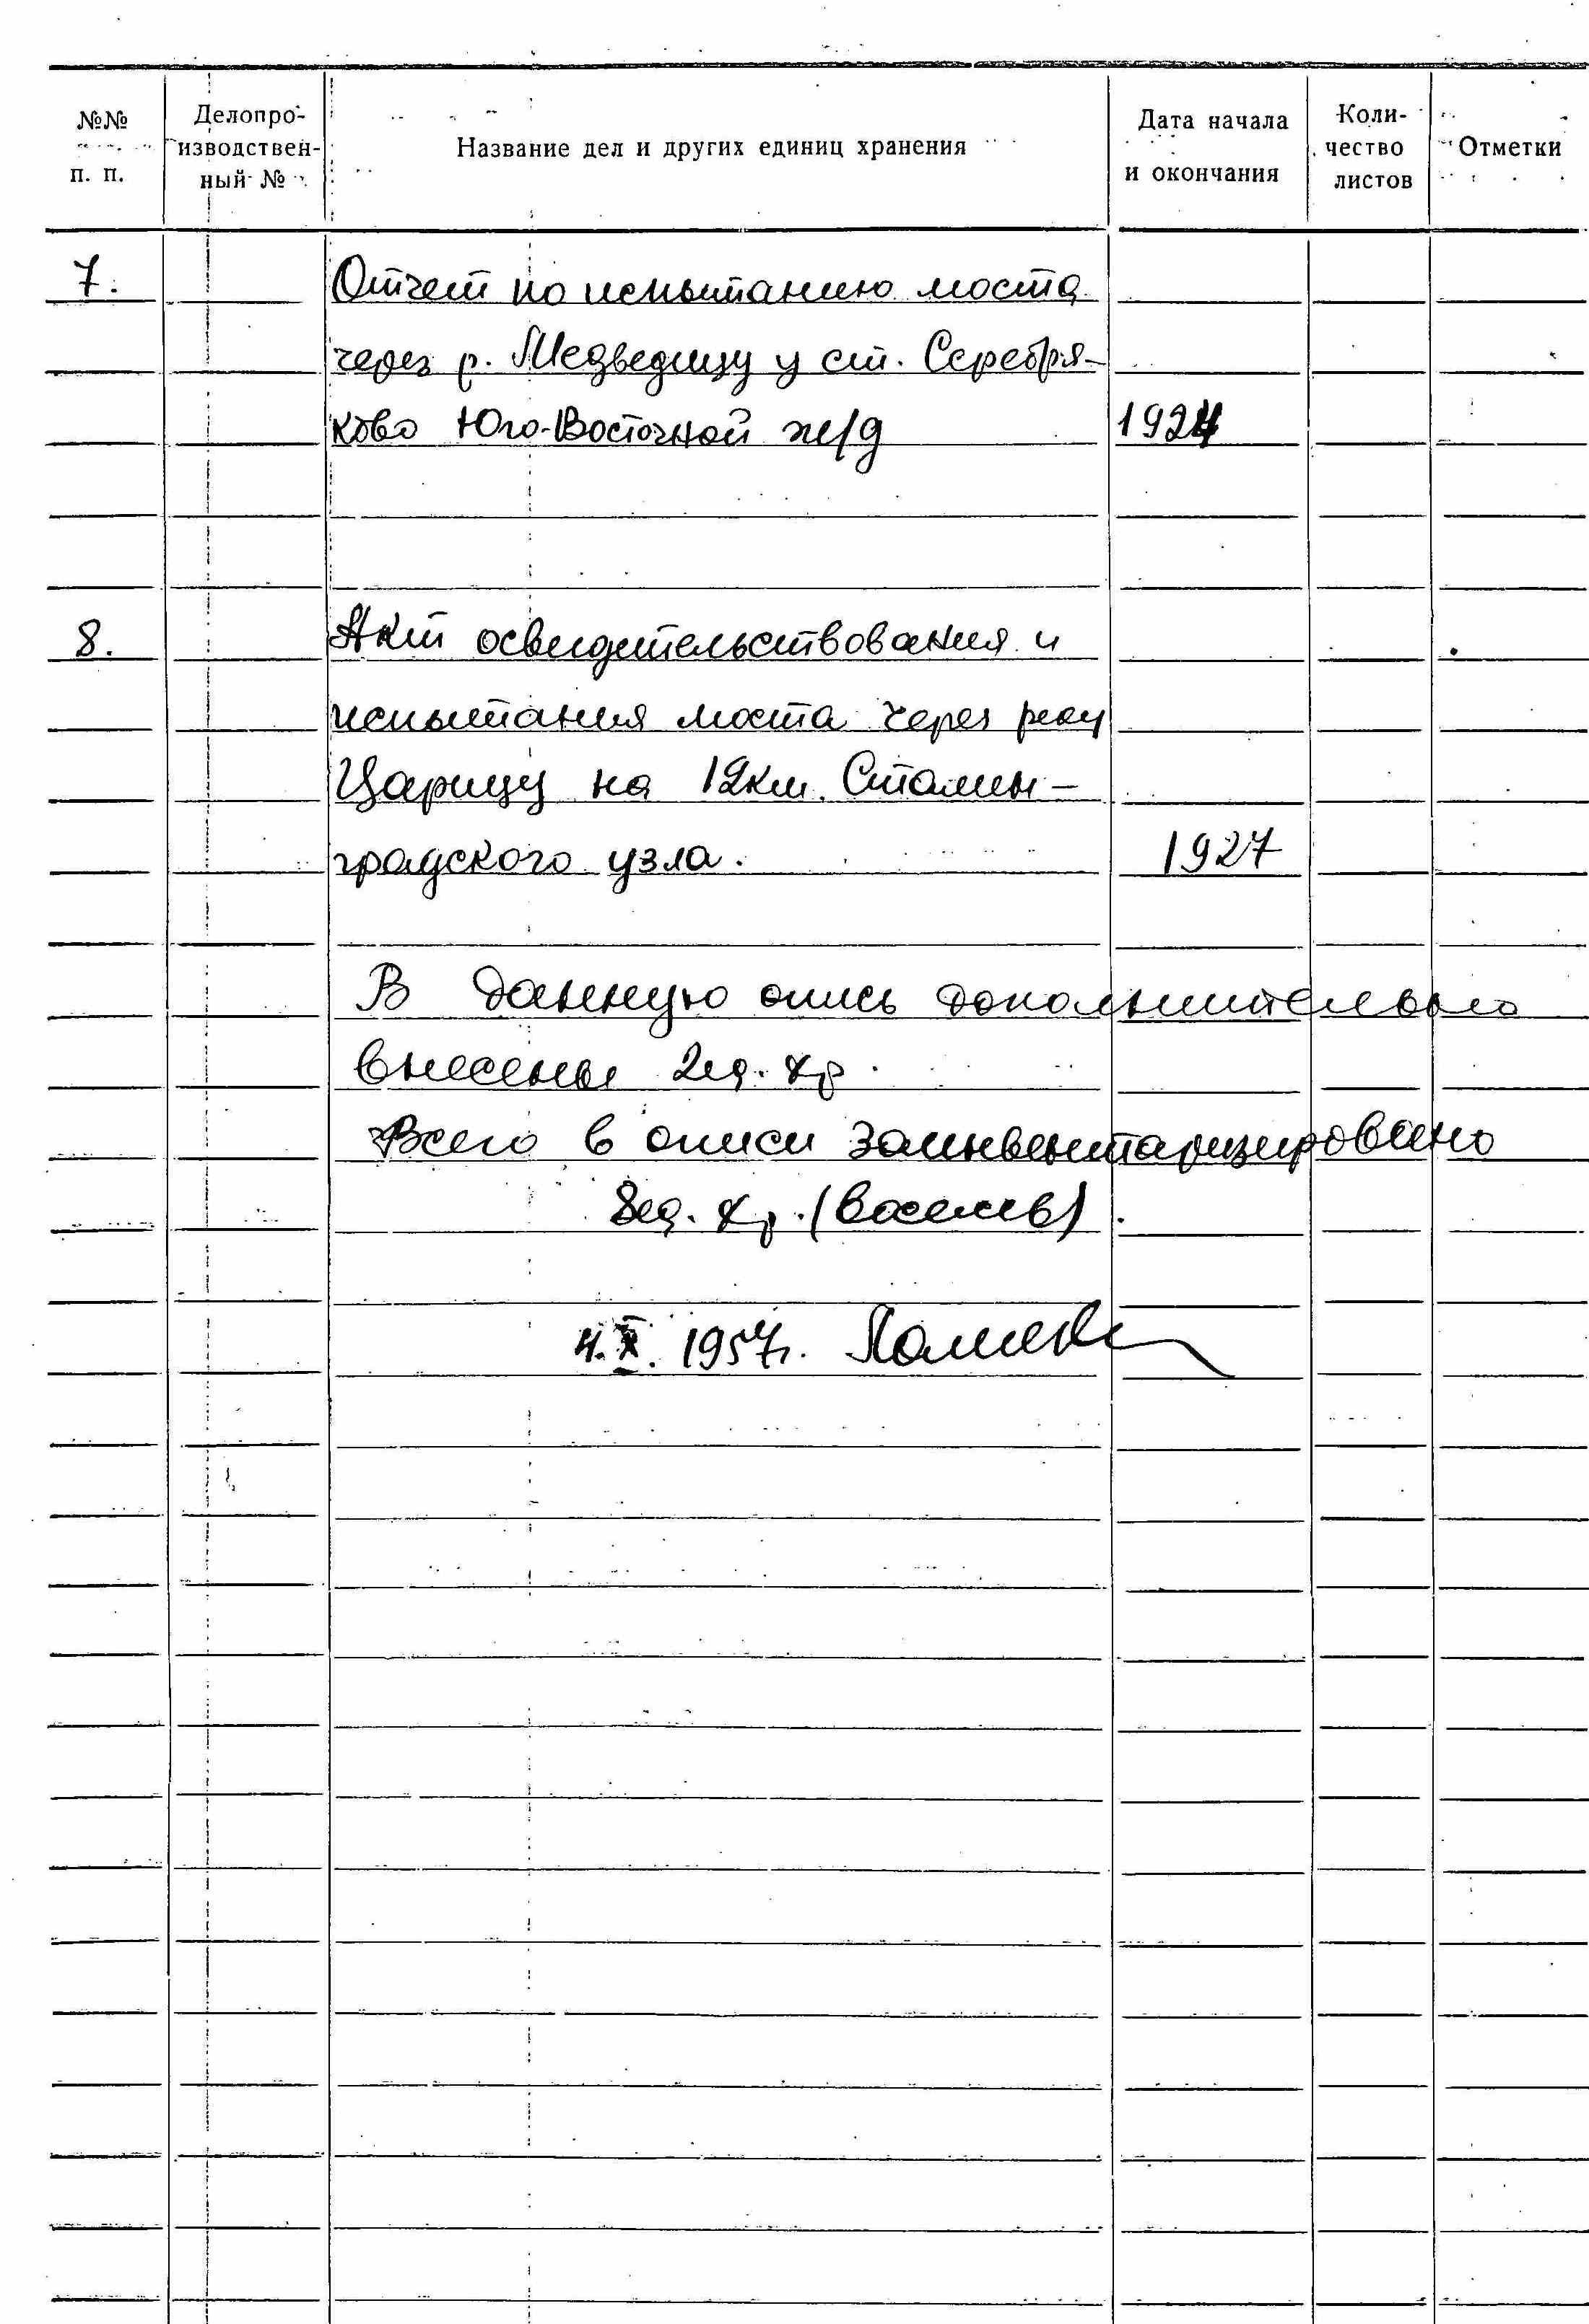 №№ п. п.
Делопро-
изводствен-
ный №
Название дел и других единиц хранения
Дата начала
и окончания
Коли-
чество
листов
Отметки
7. Отчет по испытанию моста
через р. Медведицу у ст. Серебря-
ково Юго-Восточной ж/д 1924
8. Акт освидетельствования и
испытания моста через реку
Царицу на 12 км. Сталин-
градского узла. 1927
В данную опись дополнительно
внесены 2 ед. хр.
Всего в описи заинвентаризировано
8 ед. хр. (восемь)
4.X.1957г.